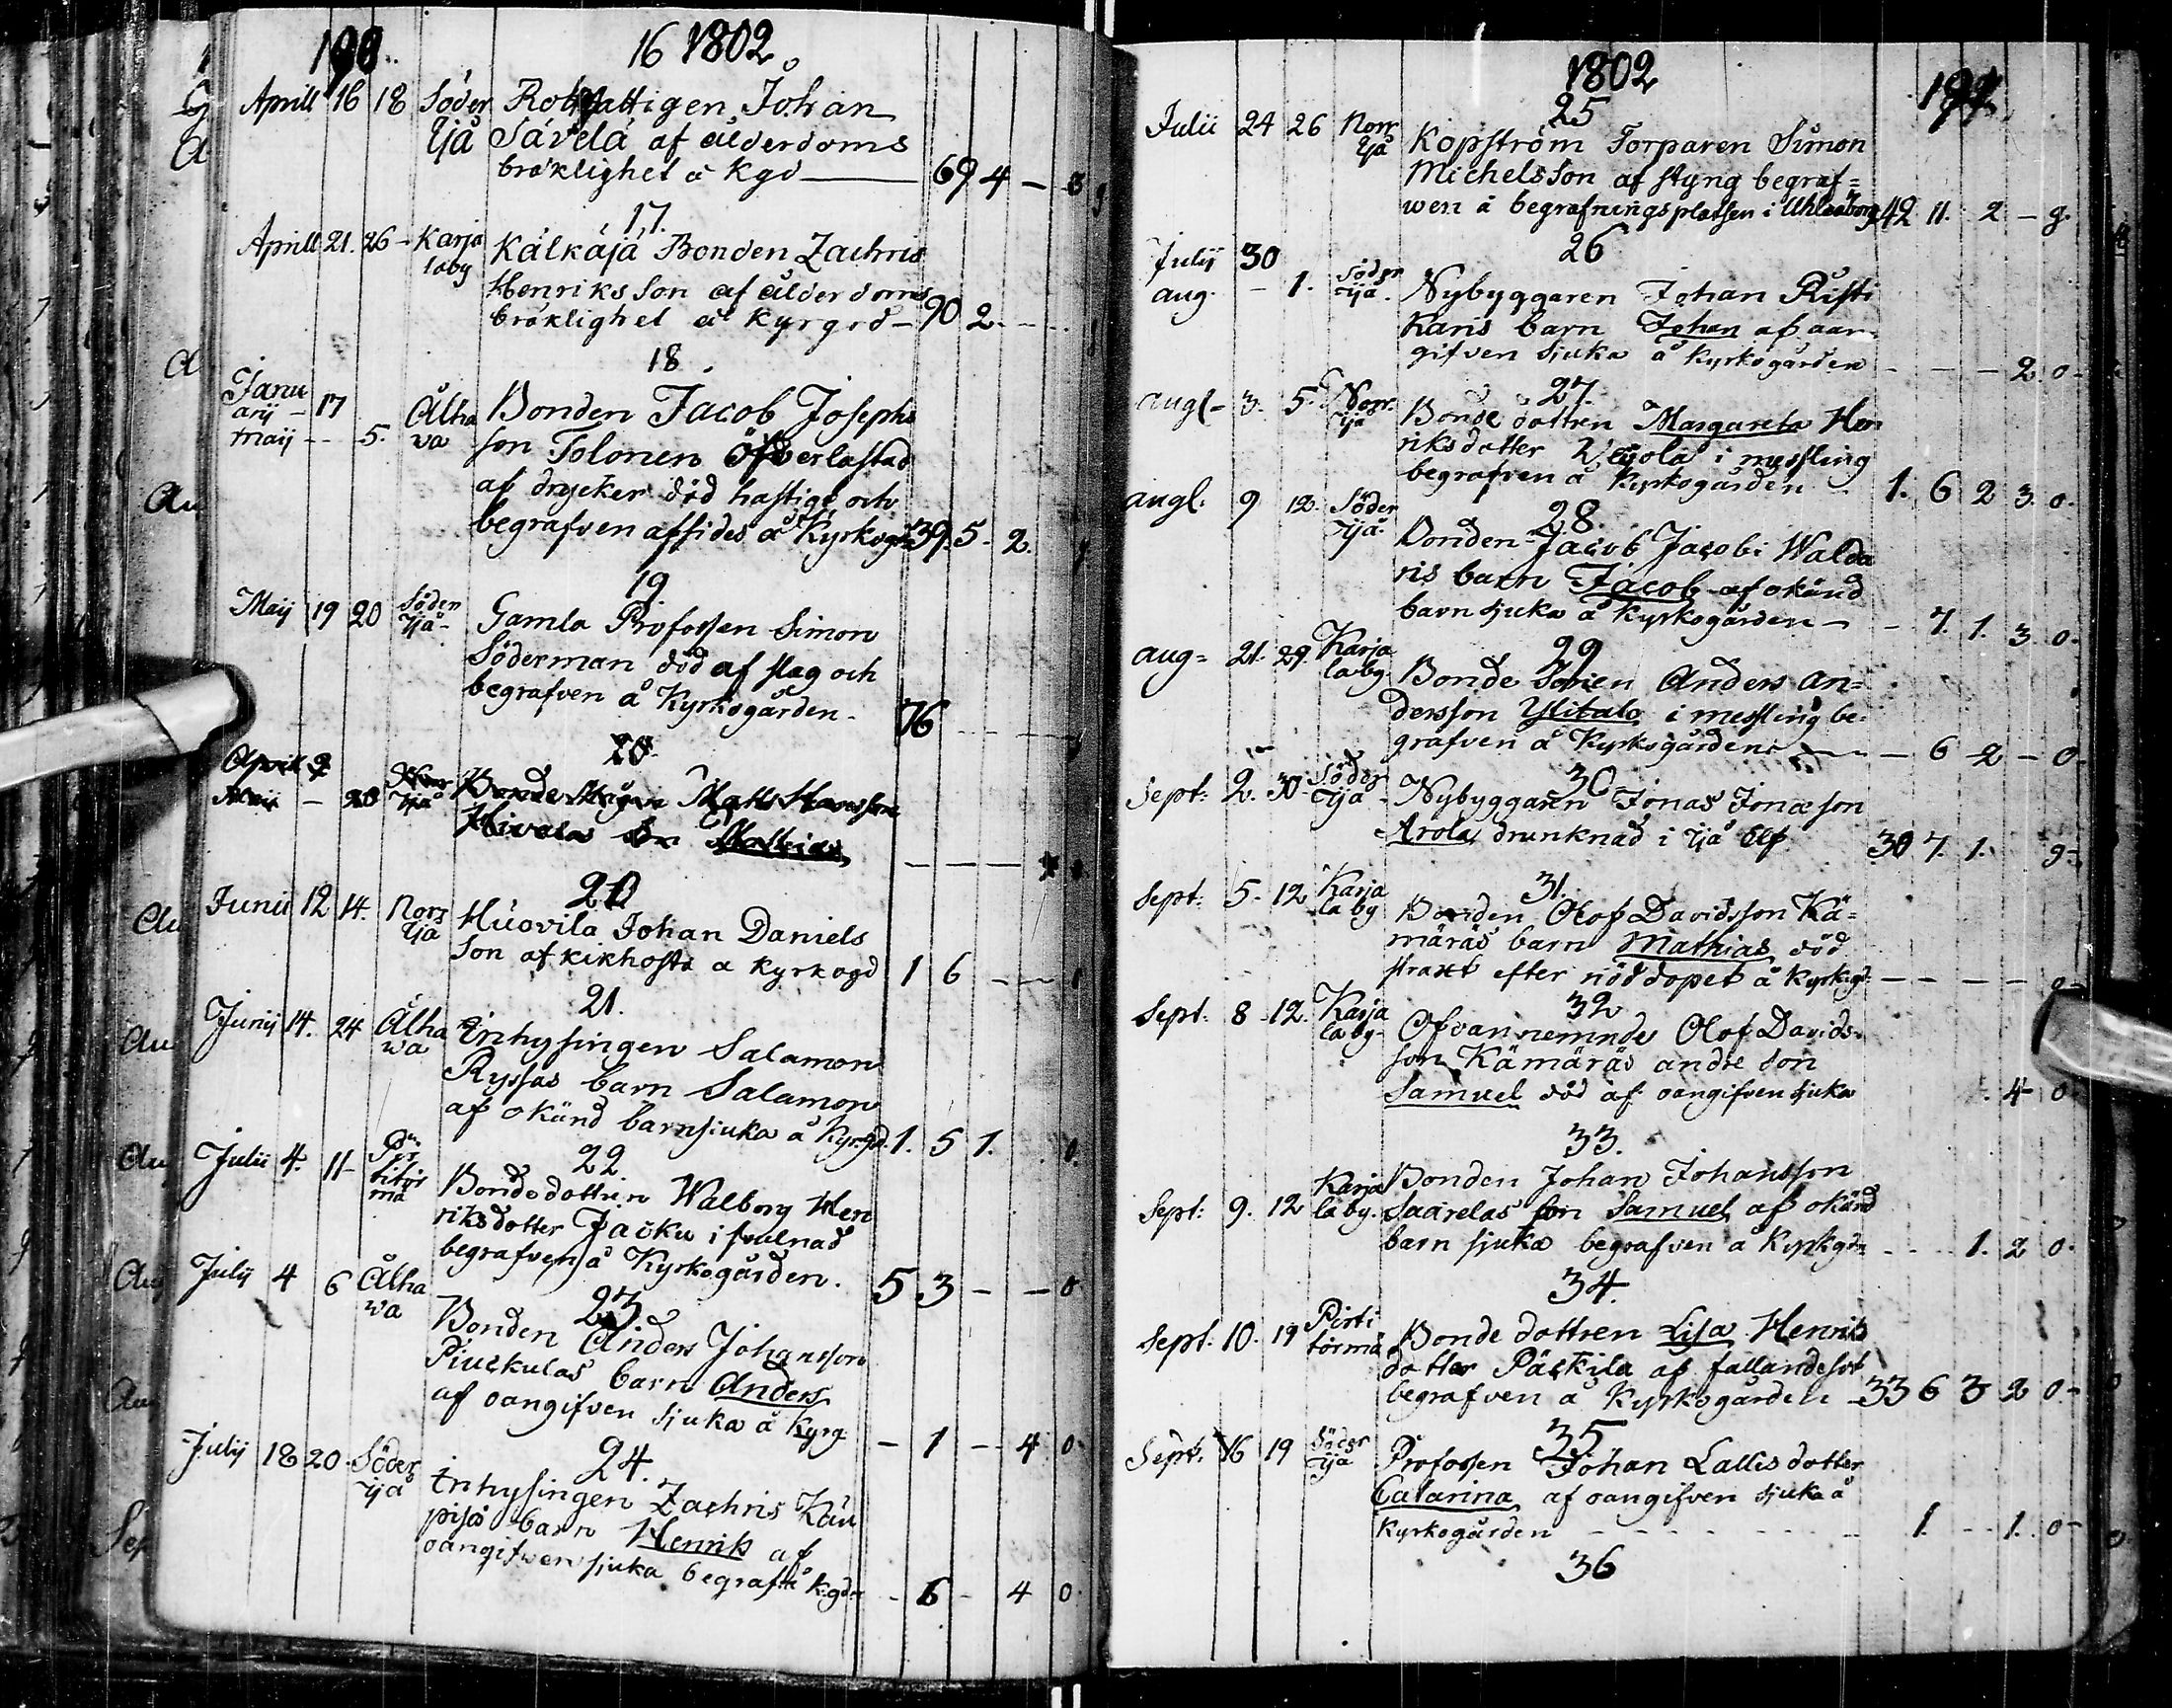 190.
16 1802.
Aprill 16 18 Söder Rotefattigen Johan
Ijå Sävelä af ålderdoms
bräklighet å Kgd — 69 4 —
17.
Aprill 21. 26 - Karja Kälkäjä Bonden Zachris
laby Henriks Son af ålderdoms
bräklighet å Kyrgrd - 90 2 - -
18.
Janu
arij - 17 Ålha Bonden Jacob Josephs
Maij - - 5. wa son Tolonen Öfverlastad
af drycker död hastigt och
begrafven afsides å Kyrkogrd 39. 5. 2.
19
Maij 19 20 Söder Gamla Profossen Simon
Ijå - Söderman död af slag och
begrafven å Kyrkogården - 76
20.
Aprill 9
Maij - 20 Ijå Matts
Mathias
20
Junii 12 14. Norr Huovila Johan Daniels
Ijå Son af kikhosta å kyrkogd 1 6 - -
21.
Junij 14. 24 Ålha Inhysingen Salamon
wa Ryssas barn Salamon
af okänd barnsiuka å Kyrgd. 1. 5 1. 0.
22
Julii 4. 11 - Pir Bondedottren Walborg Hen
titör riksdotter Jäcku i frulnad
mä begrafven å Kyrkogården. 5 3 - - 0
23
Julij 4 6 Ålha Bonden Anders Johansson
wa Piuckulas barn Anders
af oangifven sjuka å Kyrg - 1 - 4 0.
24.
Julij 18 20. Söder Inhysingen Zachris Kau
Ijå pisas barn Henrik af
oangifven sjuka begrafn å Kgdn - 6 - 4 0.
1802
191.
25
Julii 24 26 Norr Kopström Torparen Simon
Ijå Michelsson af styng begraf=
wen å begrafningsplatsen i Uhleåborg 42 11. 2 - g.
26
Julij 30
aug. - 1. Söder Nybyggaren Johan Risti
Ijå. Karis barn Johan af oan
gifven sjuka å Kyrkogården - - - 2. 0 -
27.
augl - 3. 5. Norr. Bonde dottren Margareta Hen
Ijå riksdotter Wejola i messling
begrafven å Kyrkogården - 1. 6 2 3. 0.
28.
augl. 9 12. Söder Bonden Jacob Jacobi Walda
Ijå. ris barn Jacob af okänd
barnsjuka å Kyrkogården - - 7. 1. 3 0.
29
aug = 21. 29. Karja Bonde Sonen Anders An=
laby dersson Ylitalo i messling be-
grafven å Kyrkogården - 6 2 - 0.
30
Sept: 2. 30. Söder Nybyggaren Jonas Jonæson
Ijå - Arola drunknad i Ijå Elf 30 7. 1. g -
31.
Sept: 5. 12 Karja Bonden Olof Davidsson Kä=
laby märäs barn Mathias död
straxt efter nöddopet å Kyrkgd - - - - 0 -
32
Sept: 8 - 12. Karja Ofvannemnde Olof Davids-
laby - son Kämäräs andre son
Samuel död af oangifven sjuka 4 - 0
33.
Karja Bonden Johan Johansson
Sept: 9. 12 laby. Saarelas son Samuel af okänd
barnsjuka begrafven å Kyrkgdn - - - 1. 2 0.
34.
Sept: 10. 19 Pirti Bonde dottren Lisa Henriks
törmä dotter Päckilä af fallandesot
begrafven å Kyrkogården - 33 6 3 2 0 -
35
Sept. 16 19 Söder Profossen Johan Lallis dotter
Ijå Catarina af oangifven sjuka å
Kyrkogården - - - - - 1. - - 1. 0 -
36